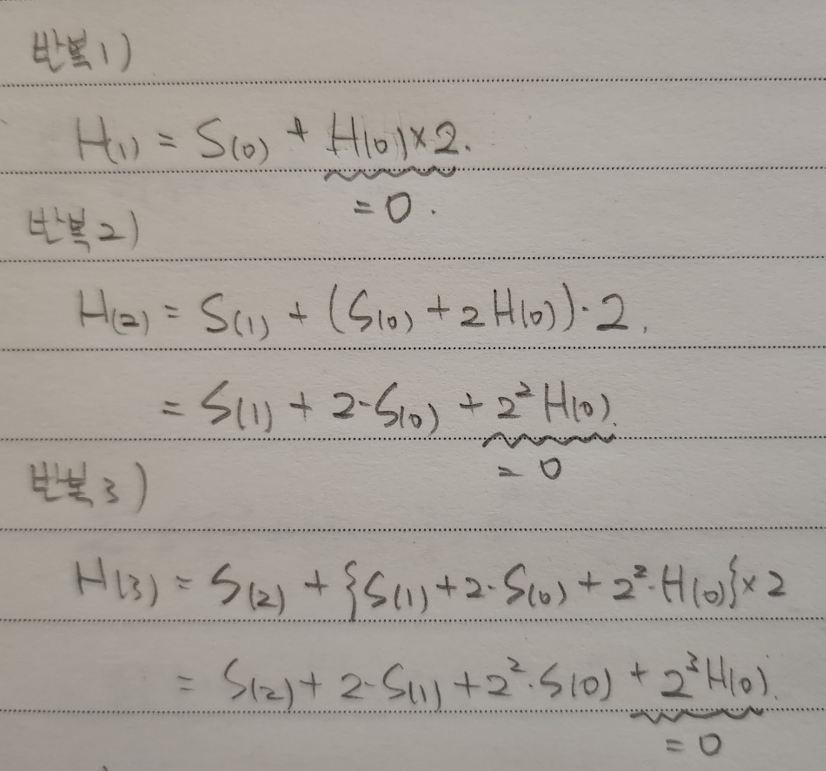 반복1)
H(1) = S(0) + H(0)×2.
= 0.
반복2)
H(2) = S(1) + (S(0) + 2H(0))·2.
= S(1) + 2·S(0) + 2² H(0).
= 0
반복3)
H(3) = S(2) + {S(1) + 2·S(0) + 2²·H(0)}×2
= S(2) + 2·S(1) + 2²·S(0) + 2³H(0).
= 0